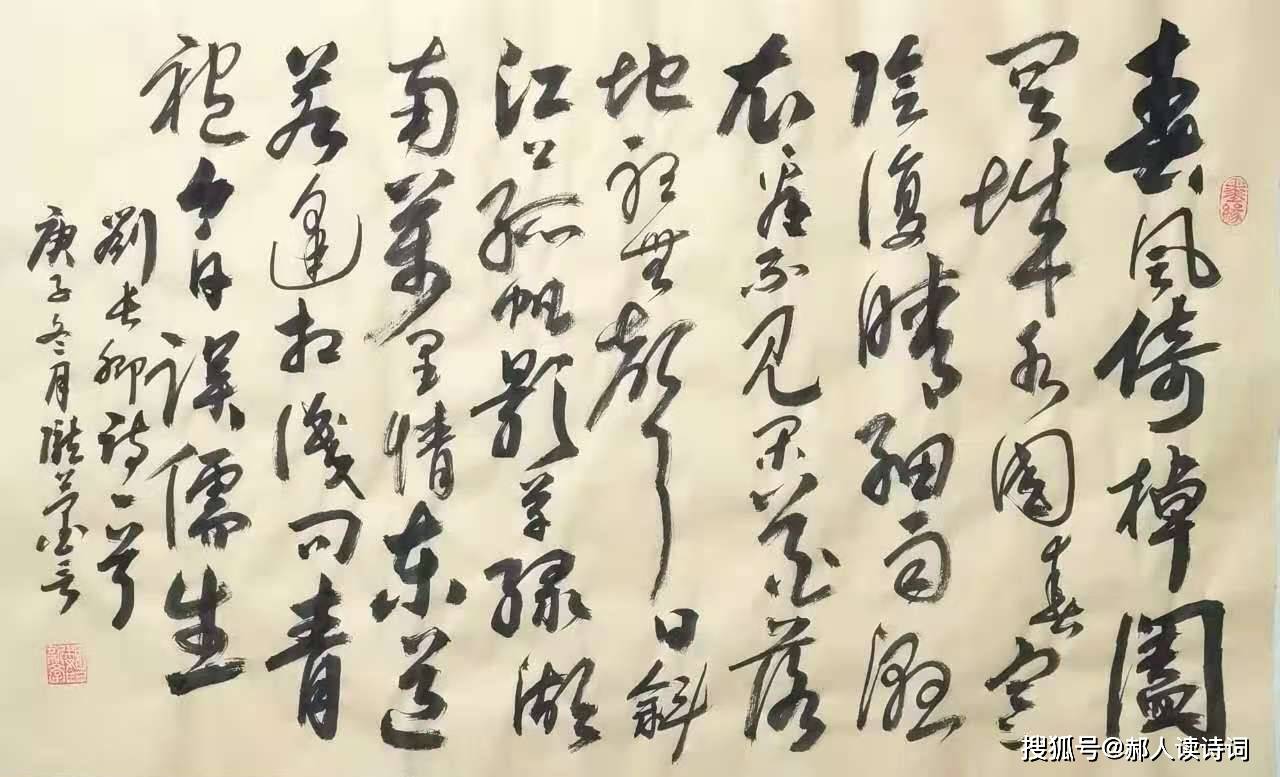 春風倚棹阖
閭城水國春寒
陰復晴細雨濕
衣看不見閑花落
地聽無聲日斜
江上孤帆影草緑湖
南萬里情東道
若逢相識问青
袍今日誤儒生
劉長卿詩一首
庚子冬月
墨缘
搜狐号@郝人读诗词